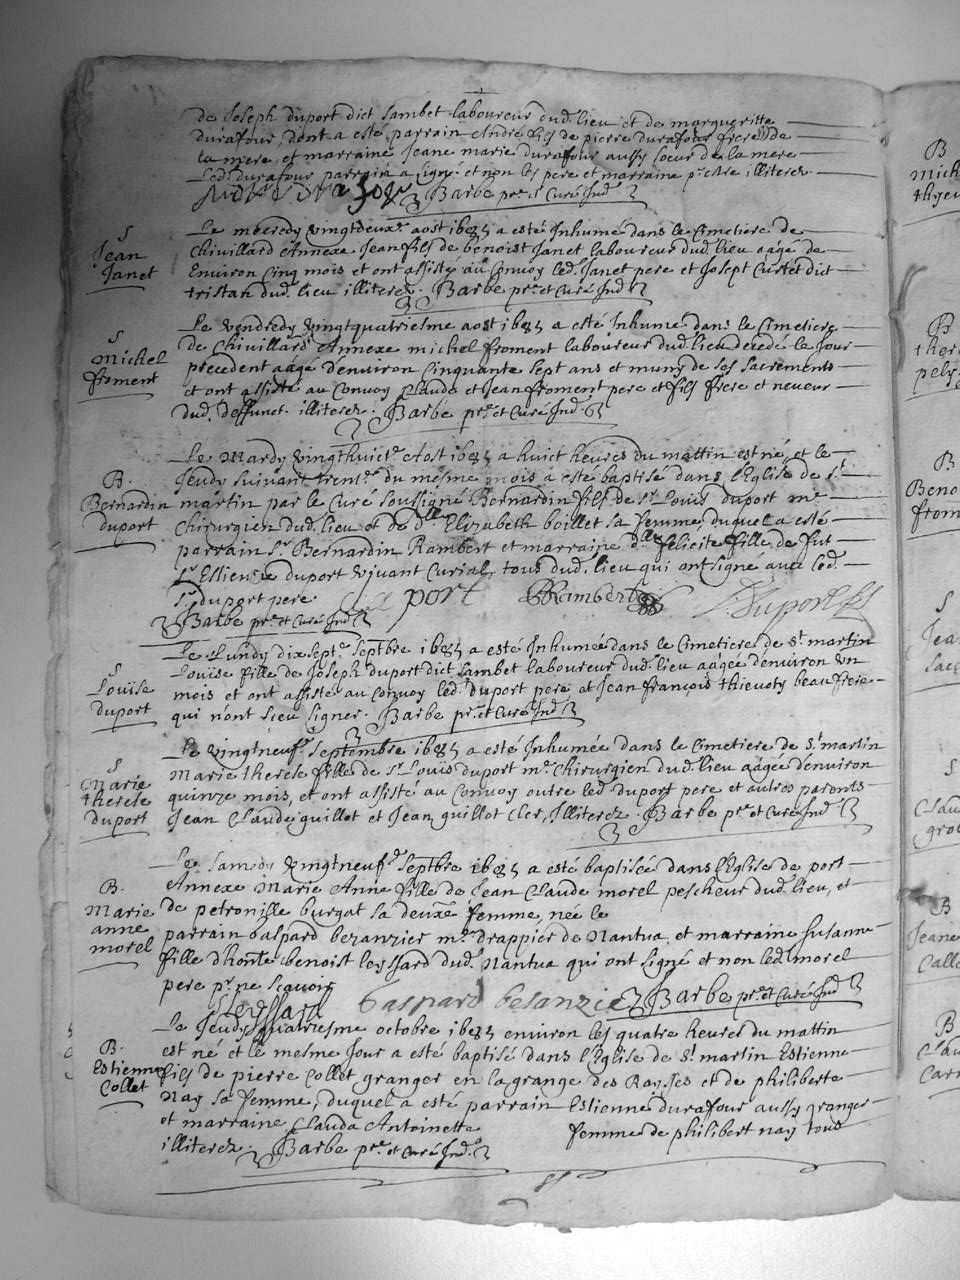 de Joseph duport dict Lambet laboureur dud. lieu et de margueritte
durafour, dont a esté parrain André fils de pierre durafour frere de
la mere, et marraine Jeane marie durafour aussy soeur de la mere
Led. durafour parrain a signé. et non les pere et marraine pr estre illiterez
Barbe pre. et Curé Ind.
S
Jean
Janet
Le mecredy vingtdeuxe. aost 1685 a esté Inhumé dans le Cimetiere de
Chivillard Annexe Jean fils de benoist Janet laboureur dud. lieu aagé de
Environ Cinq mois et ont assisté au Convoy led. Janet pere et Josept Curtet dit
tristan dud. lieu illiterez. Barbe pre. et Curé Ind.
S
Michel
froment
Le vendredy vingtquatriesme aost 1685 a esté Inhumé dans le Cimetiere
de Chivillard Annexe michel froment laboureur dud. lieu decedé le Jour
precedent aagé denviron Cinquante sept ans et muny de ses sacrements
et ont assisté au Convoy Claude et Jean froment pere et fils frere et neveur
dud. deffunct. illiterez. Barbe pre. et Curé Ind.
B.
Bernardin
Duport
Le Mardy vingthuicte. Aost 1685 a huict heures du mattin est né, et le
Jeudy suivant trente. du mesme mois a esté baptisé dans l'Eglise de St.
martin par le Curé soussigné Bernardin fils de Sr. Louis duport me.
Chirurgien dud. lieu et de dlle. Elizabeth boillet sa femme, duquel a esté
parrain Sr. Bernardin Rambert et marraine dlle. felicité fille de fut
Sr. Estienne duport vivant Curial, tous dud. lieu qui ont signé avec led.
Sr. duport pere. port BRambert Duport
Barbe pre. et Curé Ind.
S
Louïse
duport
Le Lundy dixsepte. septbre 1685 a esté Inhumée dans le Cimetiere de St. martin
Louïse fille de Joseph duport dict Lambet laboureur dud. lieu aagée denviron un
mois et ont assisté au Convoy led. duport pere et Jean françois thievoty beaufrere
qui n'ont sceu signer. Barbe pre. et Curé Ind.
S
Marie
therese
duport
Le vingtneufe. septembre 1685 a esté Inhumée dans le Cimetiere de St. martin
Marie therese fille de Sr. Louïs duport me. Chirurgien dud. lieu aagée denviron
quinze mois, et ont assisté au Convoy outre led. duport pere et autres parents
Jean Claude guillot et Jean guillot Cler, Illiterez. Barbe pre. et Curé Ind.
B.
Marie
anne
morel
Le Samedy vingtneufe. septbre 1685 a esté baptisée dans l'Eglise de port
Annexe Marie Anne fille de Jean Claude morel pescheur dud. lieu, et
de petronille burgat sa deuxe. femme, née le
parrain Gaspard bezanzier me. drappier de Nantua, et marraine Susanne
fille dhonte. benoist leyssard dud. Nantua qui ont signé et non led. morel
pere pr. ne scavoir
S Leyssard Gaspard besanzie Barbe pre. et Curé Ind.
B.
Estienne
Collet
Le Jeudy quatriesme octobre 1685 environ les quatre heures du mattin
est né et le mesme Jour a esté baptisé dans l'Eglise de St. martin Estienne
fils de pierre Collet granger en la grange des Raysses et de philiberte
Nay sa femme, duquel a esté parrain Estienne durafour aussy granger
et marraine Clauda Antoinette femme de philibert nay tous
illiterez. Barbe pre. et Curé Ind.
B
B
B
S
S
B
B